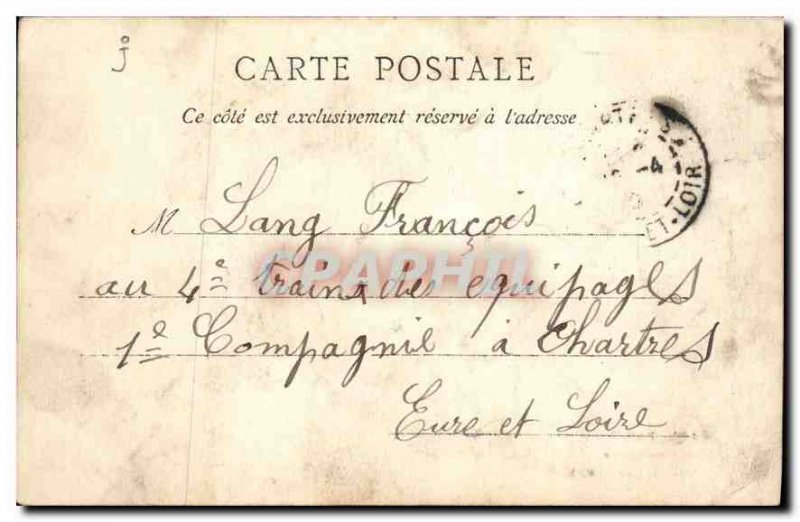 j
CARTE POSTALE
Ce côté est exclusivement réservé à l'adresse
ET-LOIR
M Lang François
CPARPHIL
au 4e train des equipages
1e Compagnie à Chartres
Eure et Loire